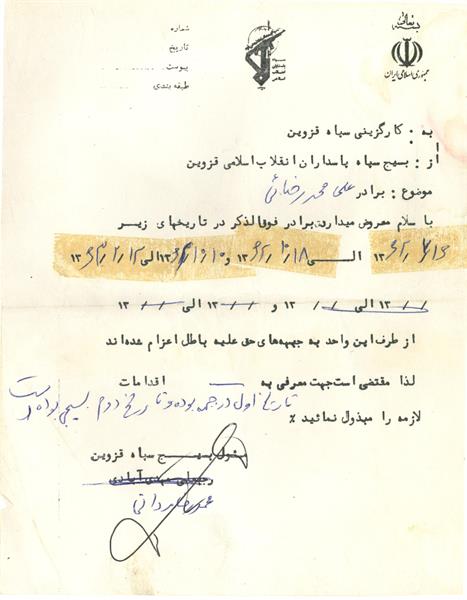 بسمه تعالی
جمهوری اسلامی ایران
شماره
تاریخ
پیوست
طبقه بندی
به : کارگزینی سپاه قزوین
از : بسیج سپاه پاسداران انقلاب اسلامی قزوین
موضوع : برادر علی محمد رضائی
با سلام معروض میدارد برادر فوق الذکر در تاریخهای زیر
۱۳ الی ۱۳ و ۱۳ الی ۱۳
۱۳ الی / / ۱۳ و / / ۱۳ الی / / ۱۳
از طرف این واحد به جبهه های حق علیه باطل اعزام شده اند
لذا مقتضی است جهت معرفی به اقدامات
تاریخ اول در جبهه بوده و تاریخ دوم بسیجی بوده است
لازمه را مبذول نمائید ٪
مسئول بسیج سپاه قزوین